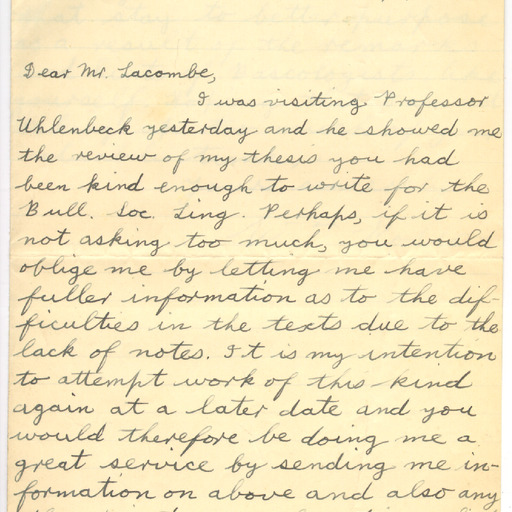 Dear Mr. Lacombe,
I was visiting Professor
Uhlenbeck yesterday and he showed me
the review of my thesis you had
been kind enough to write for the
Bull. Soc. Ling. Perhaps, if it is
not asking too much, you would
oblige me by letting me have
fuller information as to the dif-
ficulties in the texts due to the
lack of notes. It is my intention
to attempt work of this kind
again at a later date and you
would therefore be doing me a
great service by sending me in-
formation on above and also any